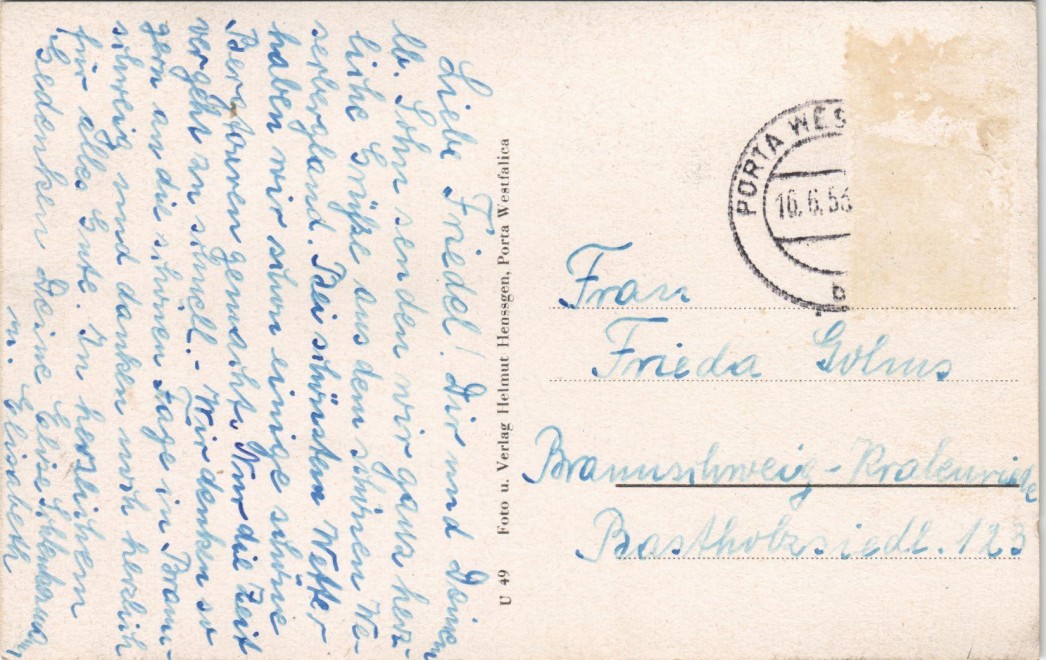 Liebe Friedel! Dir und Deinem
lb. Sohn senden wir ganz herz-
liche Grüße aus dem schönen We-
serbergland. Bei schönsten Wetter
haben wir schon einige schöne
Bergtouren gemacht. Nur die Zeit
vergeht zu schnell. - Wir denken so
gern an die schönen Tage in Braun-
schweig und danken noch herzlich
für alles Gute. In herzlichem
Gedenken Deine Elise
u. Elisabeth
U 49 Foto u. Verlag Helmut Henssgen, Porta Westfalica
PORTA WES
16.6.56
Frau
Frieda Golms
Braunschweig-Kralenriede
Bastholzsiedl. 123